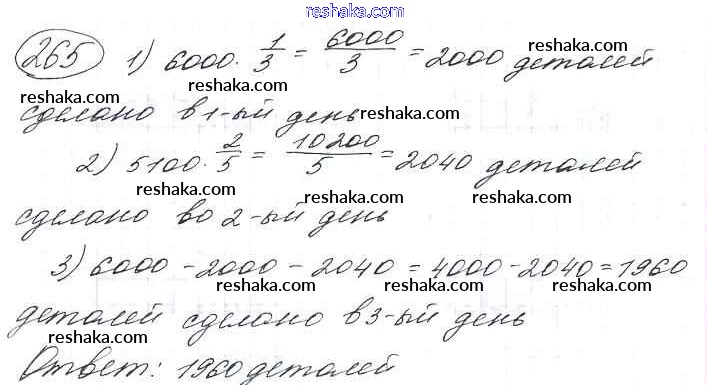 reshaka.com
265 1) 6000 · 1/3 = 6000/3 = 2000 деталей
reshaka.com reshaka.com reshaka.com
сделано в 1-ый день
reshaka.com reshaka.com
2) 5100 · 2/5 = 10200/5 = 2040 деталей
reshaka.com reshaka.com reshaka.com
сделано во 2-ый день
reshaka.com reshaka.com
3) 6000 - 2000 - 2040 = 4000 - 2040 = 1960
reshaka.com reshaka.com reshaka.com
деталей сделано в 3-ый день
reshaka.com reshaka.com
Ответ: 1960 деталей
reshaka.com